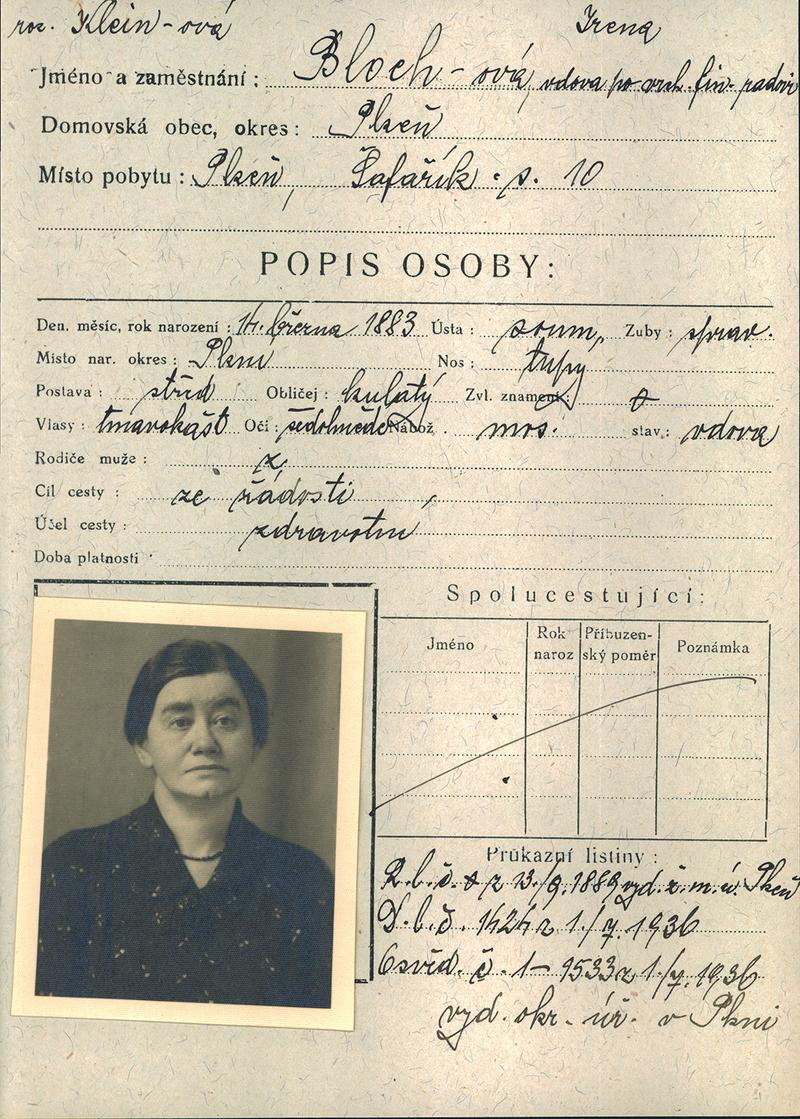 roz. Klein-ová Irena
Jméno a zaměstnání: Bloch-ová, vdova po vrch. fin. radovi
Domovská obec, okres: Plzeň
Místo pobytu: Plzeň, Šafařík. s. 10
POPIS OSOBY:
Den, měsíc, rok narození: 14. března 1883 Ústa: soum, Zuby: sprav.
Místo nar. okres: Plzni Nos: tupý
Postava: střed Obličej: kulatý Zvl. znamení:
Vlasy: tmavokašt Oči: šedohnědé Nábož. mos. stav: vdova
Rodiče muže:
Cíl cesty: ze žádosti,
Účel cesty: zdravotní
Doba platnosti
Spolucestující:
Jméno Rok naroz Příbuzenský poměr Poznámka
Průkazní listiny:
R.l.č. z 13./9. 1889 vyd. ž. m. ú. Plzeň
D.l.č. 1424 z 1./7. 1936
Osvěd. č. 1-9533 z 1./7. 1936
vyd. okr. úř. v Plzni